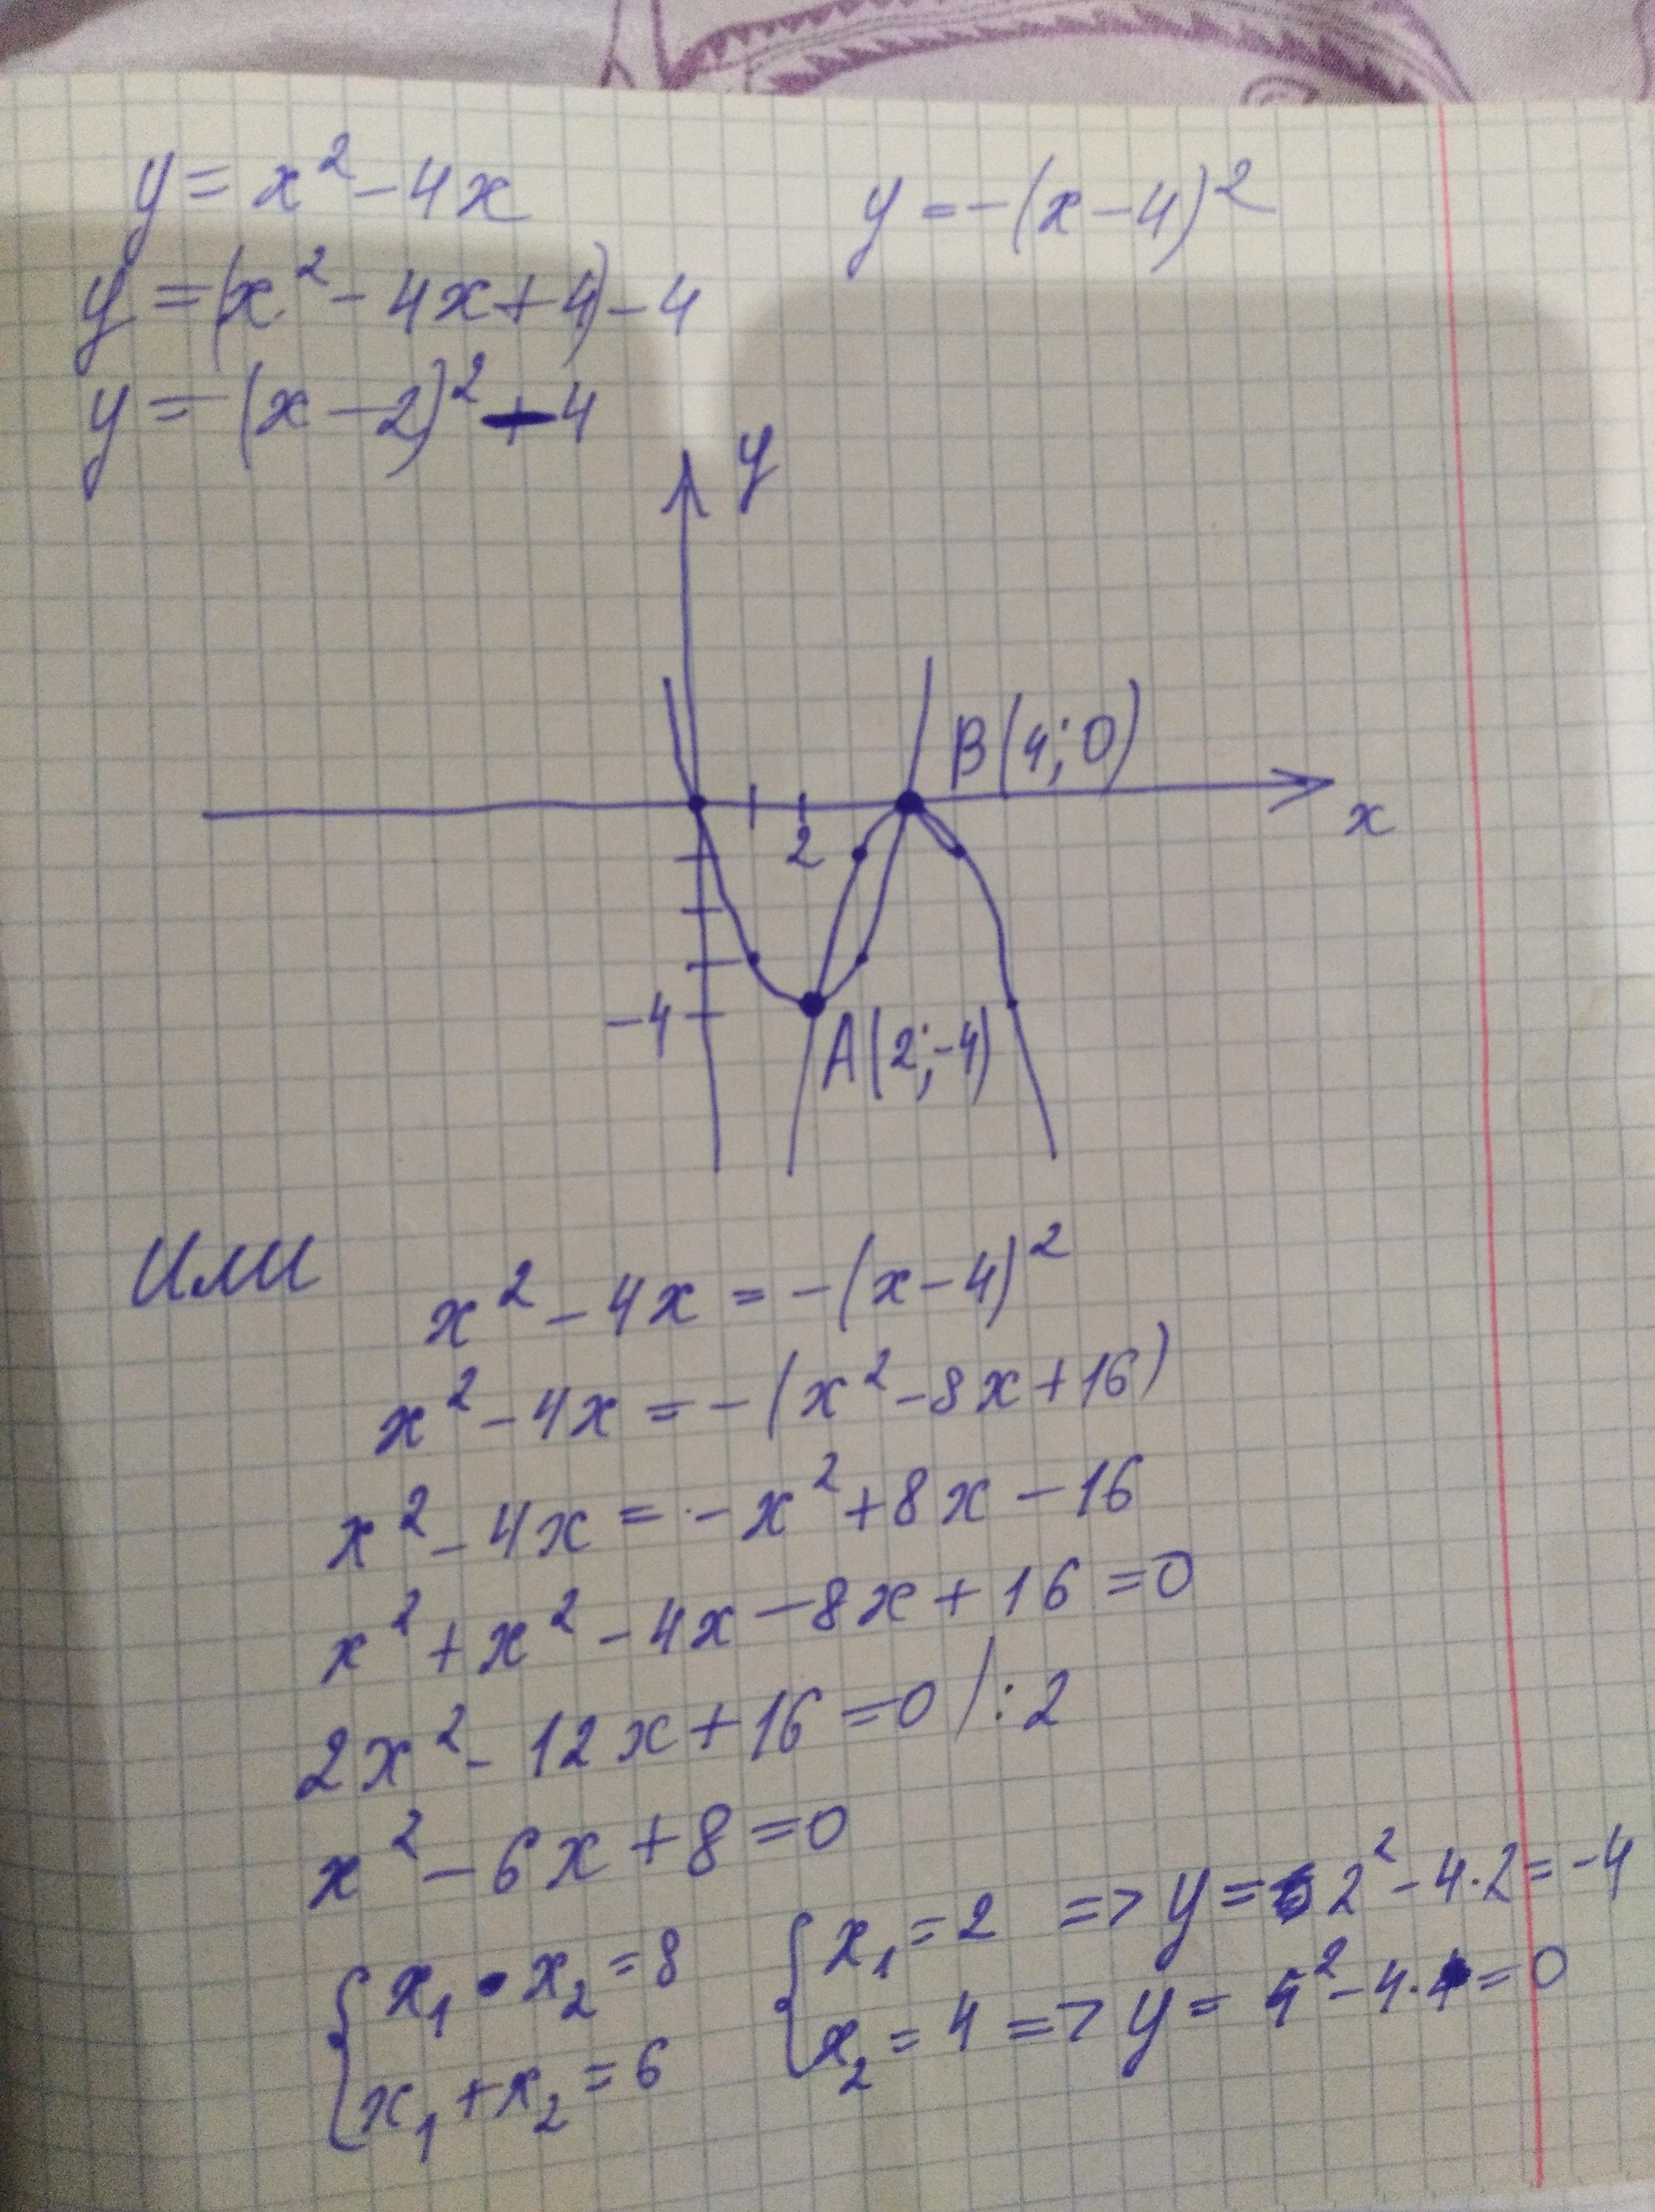 y = x² - 4x
y = -(x - 4)²
y = (x² - 4x + 4) - 4
y = (x - 2)² - 4
y
B(4; 0)
x
2
-4
A(2; -4)
Или
x² - 4x = -(x - 4)²
x² - 4x = -(x² - 8x + 16)
x² - 4x = -x² + 8x - 16
x² + x² - 4x - 8x + 16 = 0
2x² - 12x + 16 = 0 / : 2
x² - 6x + 8 = 0
{ x₁ · x₂ = 8
x₁ + x₂ = 6
{ x₁ = 2 => y = 2² - 4·2 = -4
x₂ = 4 => y = 4² - 4·4 = 0